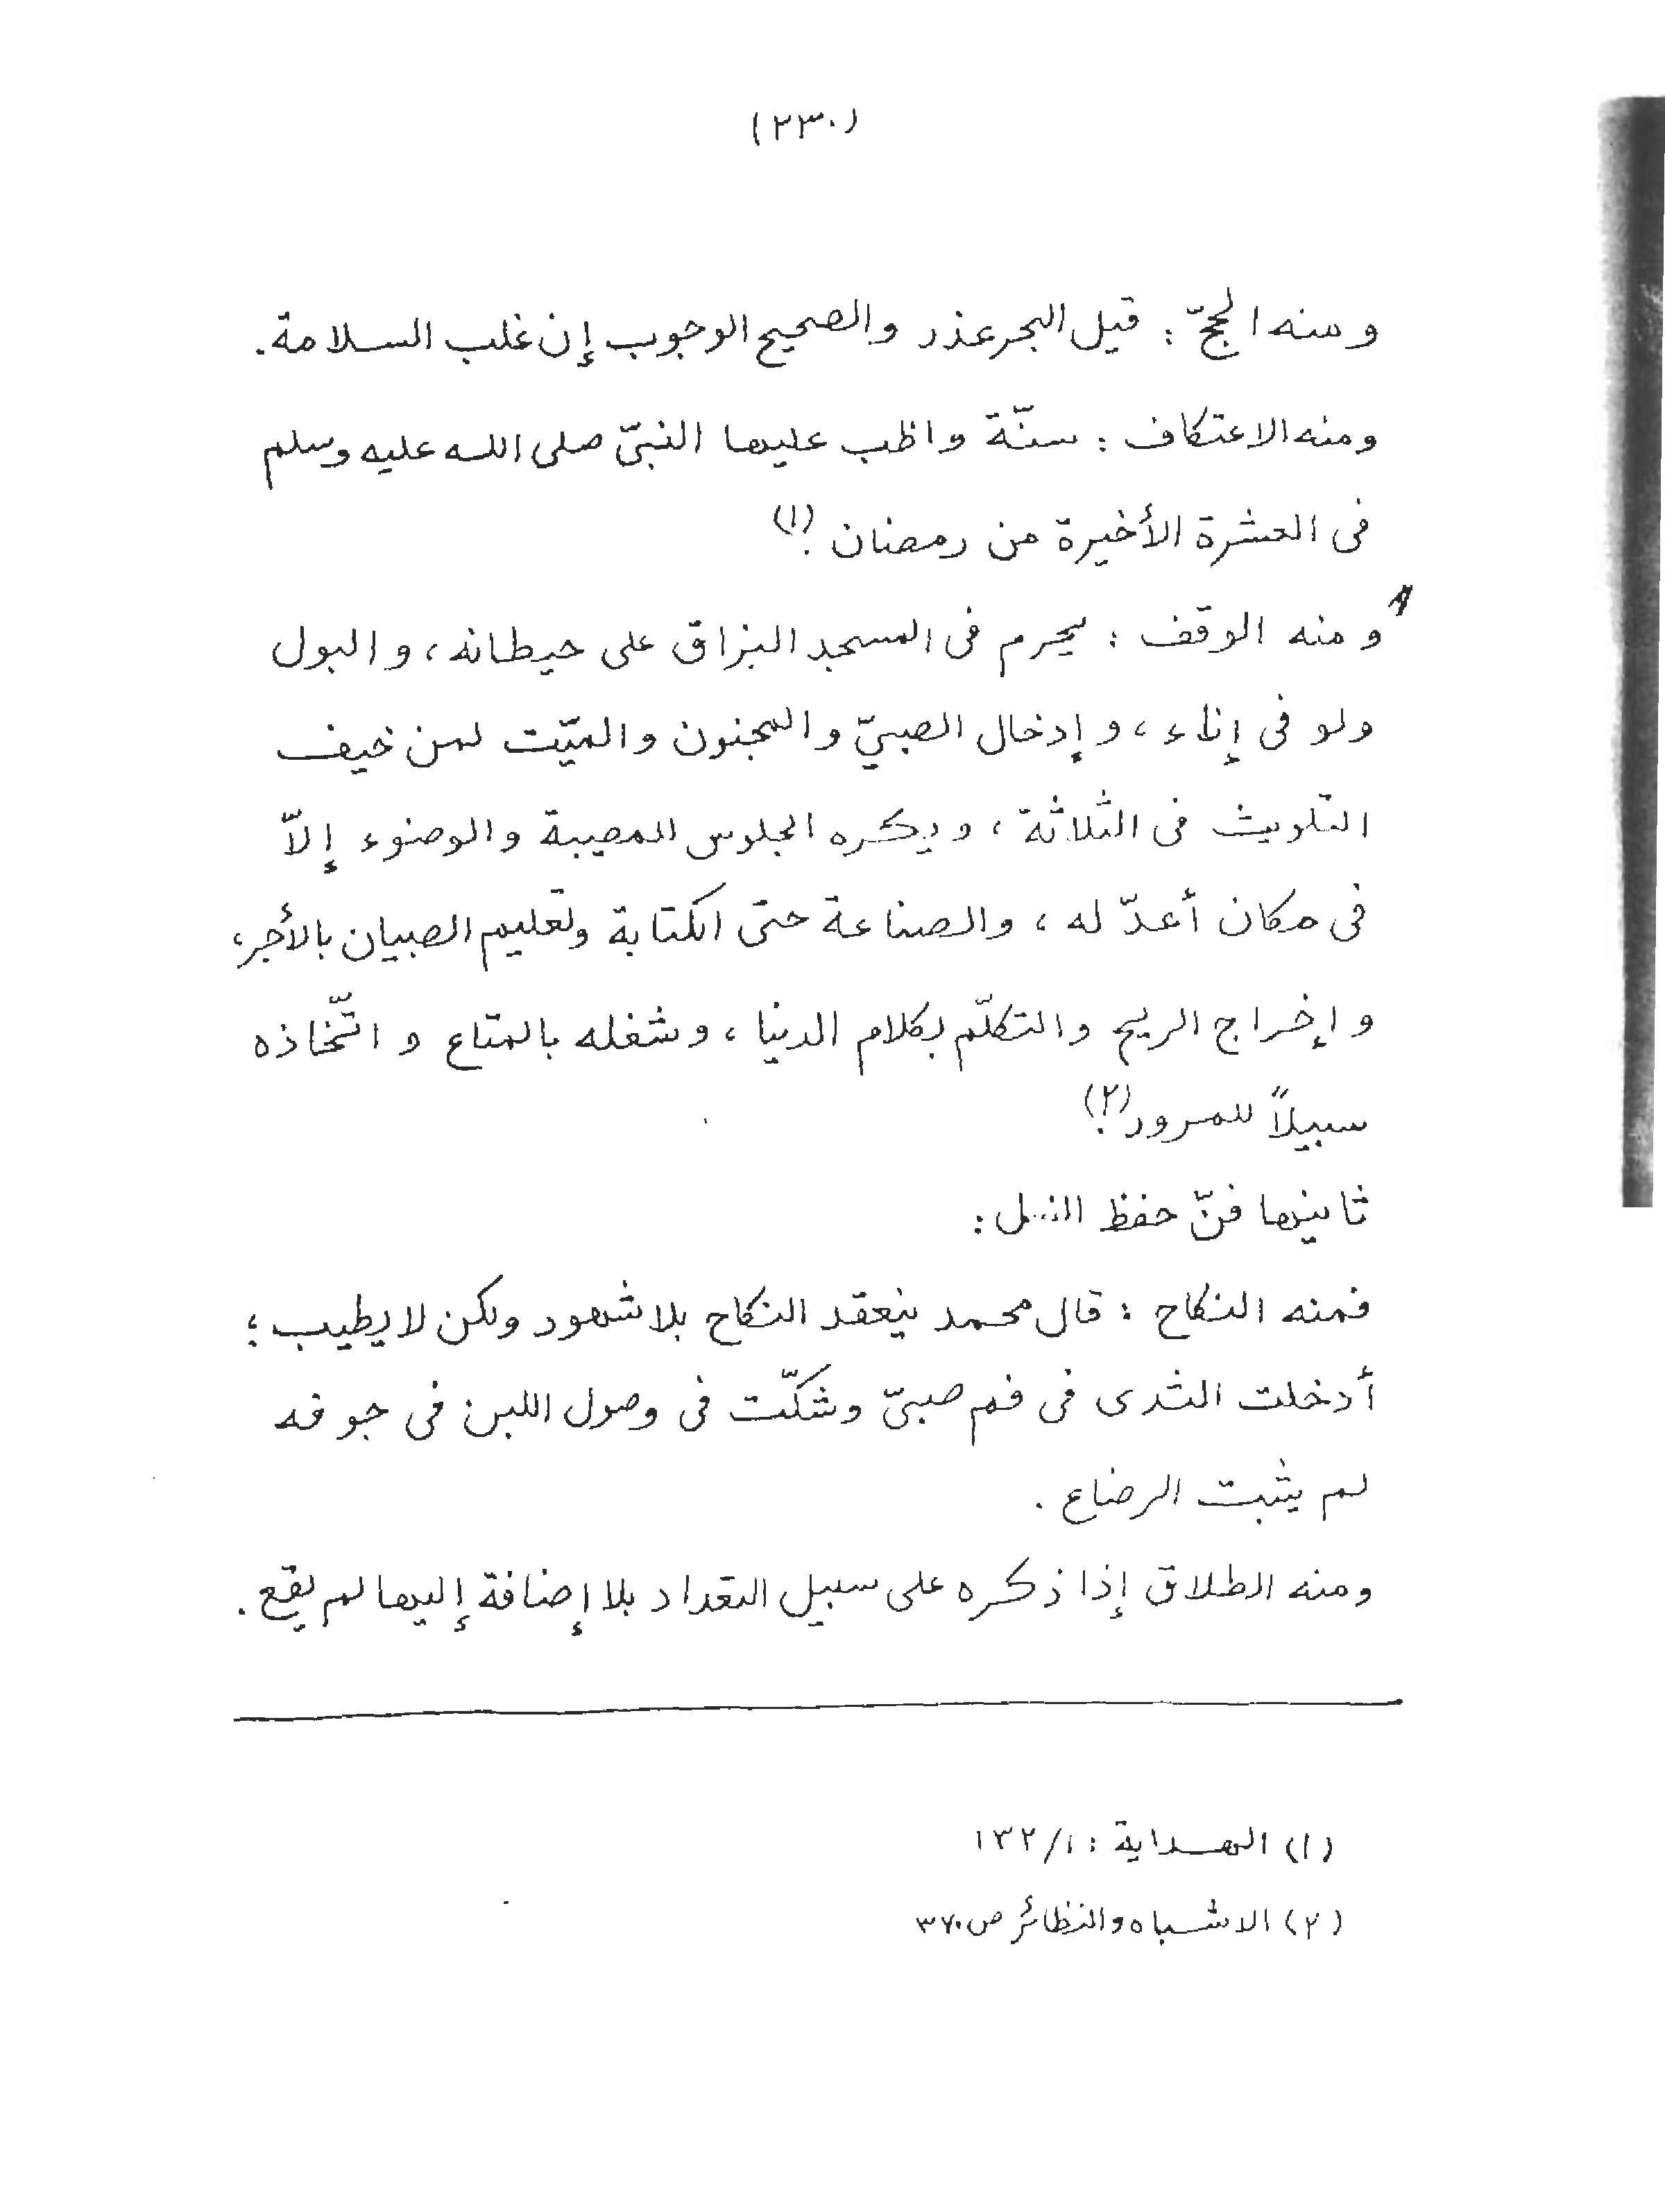 (٢٣٠)
ومنه الحجّ : قيل البحر عذر والصحيح الوجوب إن غلب السلامة.
ومنه الاعتكاف : سنّة واظب عليها النبيّ صلى الله عليه وسلم
فى العشرة الأخيرة من رمضان .(١)
ومنه الوقف : يحرم فى المسجد البزاق على حيطانه ، والبول
ولو فى إناء ، وإدخال الصبيّ والمجنون والميّت لمن خيف
التلويث فى الثلاثة ، ويكره الجلوس للمصيبة والوضوء إلاّ
فى مكان أعدّ له ، والصناعة حتى الكتابة وتعليم الصبيان بالأجر ،
وإخراج الريح والتكلّم بكلام الدنيا ، وشغله بالمتاع و اتّخاذه
سبيلاً للمرور .(٢)
ثانيها فنّ حفظ النسل :
فمنه النكاح : قال محمد ينعقد النكاح بلا شهود ولكن لا يطيب ؛
أدخلت الثدى فى فم صبىّ وشكّت فى وصول اللبن فى جوفه
لم يثبت الرضاع .
ومنه الطلاق إذا ذكره على سبيل التعداد بلا إضافة إليها لم يقع .
(١) الهداية : ١/ ١٣٢
(٢) الاشباه والنظائر ص ٣٧٠